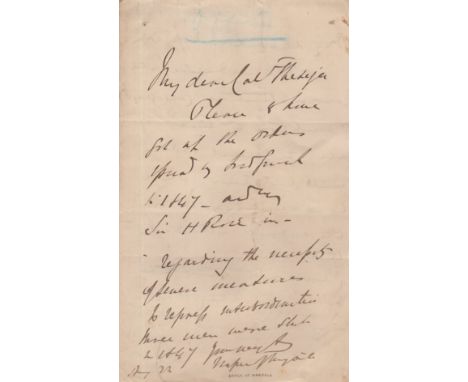 My dear Col Thesiger
Please to have
got up the orders
issued by Ld Gough
in 1847 - and by
Sir H Rose in -
regarding the necessity
of severe measures
to repress insubordination
three men were shot
in 1847
Napier of Magdala